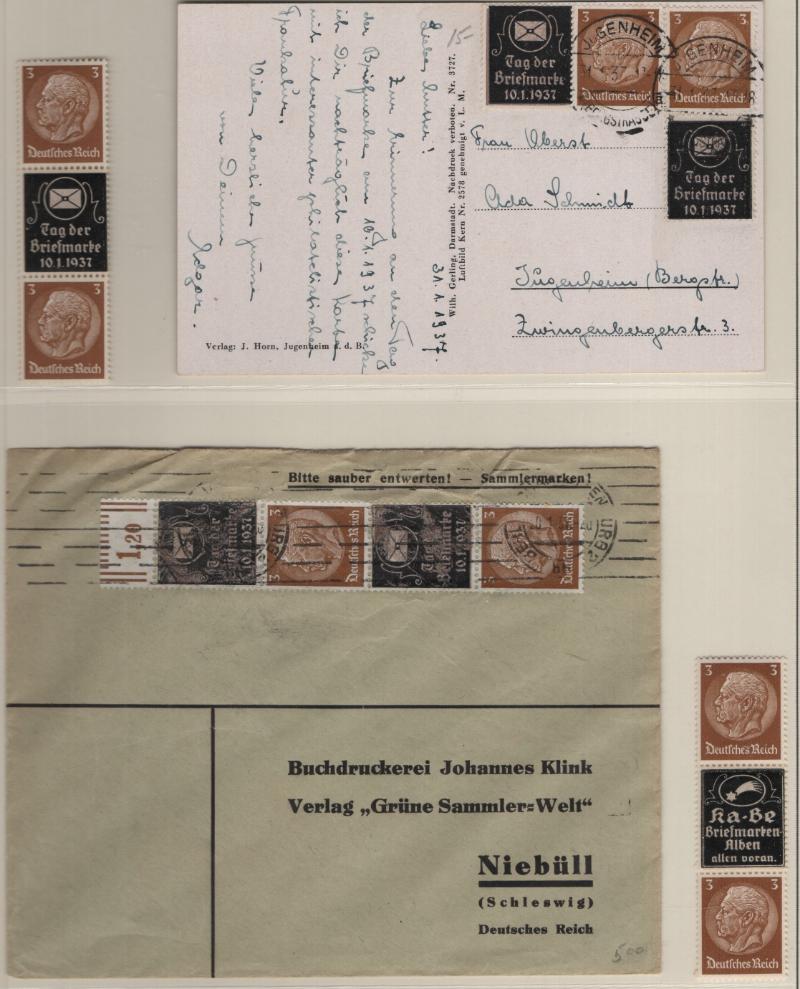 3
Deutsches Reich
Tag der
Briefmarke
10.1.1937
3
Deutsches Reich
15-
Liebe Mutter!
Zur Erinnerung an den Tag
der Briefmarke am 10.1.1937 schicke
ich Dir nachträglich diese Karte
mit interessanter philatelistischer
Frankatur.
Viele herzliche Grüsse
von Deinem
Edgar.
31.1.1937.
Wilh. Gerling, Darmstadt. Nachdruck verboten. Nr. 3727.
Luftbild Kern Nr. 2578 genehmigt v. L. M.
Verlag: J. Horn, Jugenheim a. d. B.
Tag der
Briefmarke
10.1.1937
3
Deutsches Reich
3
Deutsches Reich
JUGENHEIM
JUGENHEIM
Tag der
Briefmarke
10.1.1937
Frau Oberst
Ada Schmidt
Jugenheim (Bergstr.)
Zwingenbergerstr. 3.
Bitte sauber entwerten! — Sammlermarken!
1,20
Tag der
Briefmarke
10.1.1937
3
Deutsches Reich
Tag der
Briefmarke
10.1.1937
3
Deutsches Reich
Buchdruckerei Johannes Klink
Verlag „Grüne Sammler=Welt“
Niebüll
(Schleswig)
Deutsches Reich
500
3
Deutsches Reich
Ka-Be
Briefmarken-
Alben
allen voran.
3
Deutsches Reich